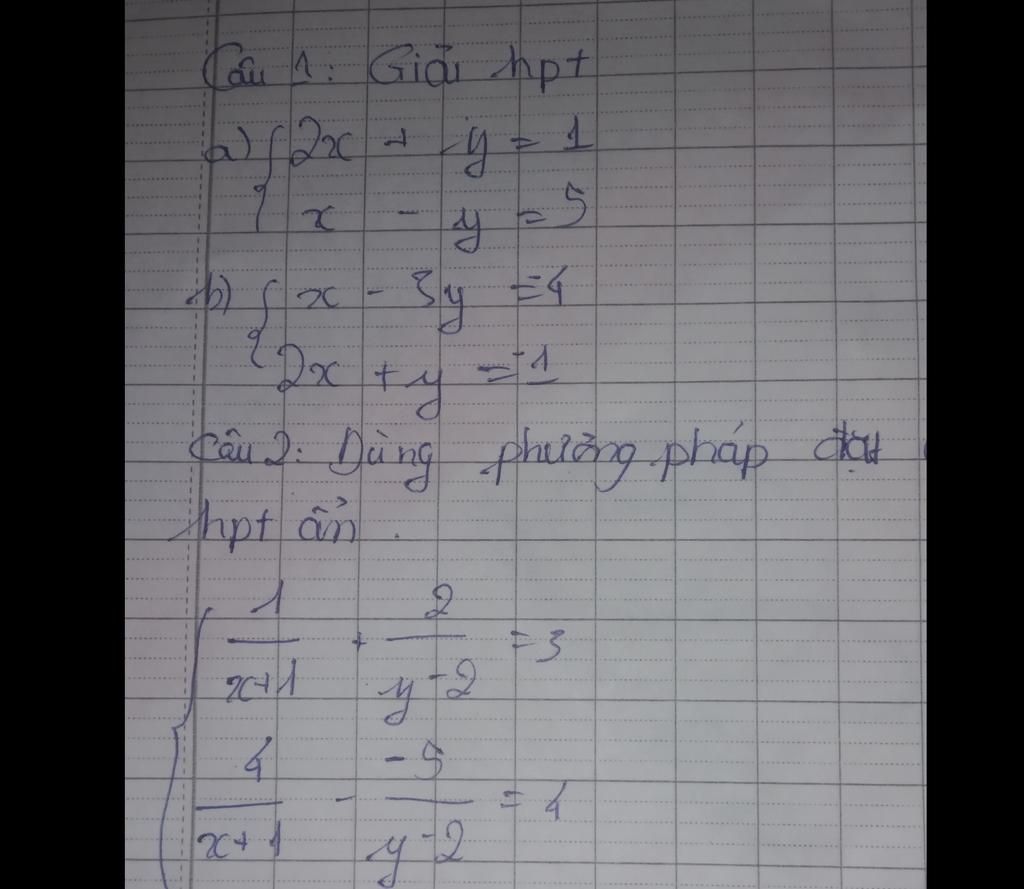 Câu 1: Giải hpt
a) { 2x + y = 1
x - y = 5
b) { x - 3y = 4
2x + y = -1
Câu 2: Dùng phương pháp đặt
hpt ẩn.
{ 1/(x+1) + 2/(y-2) = 3
4/(x+1) - -5/(y-2) = 4